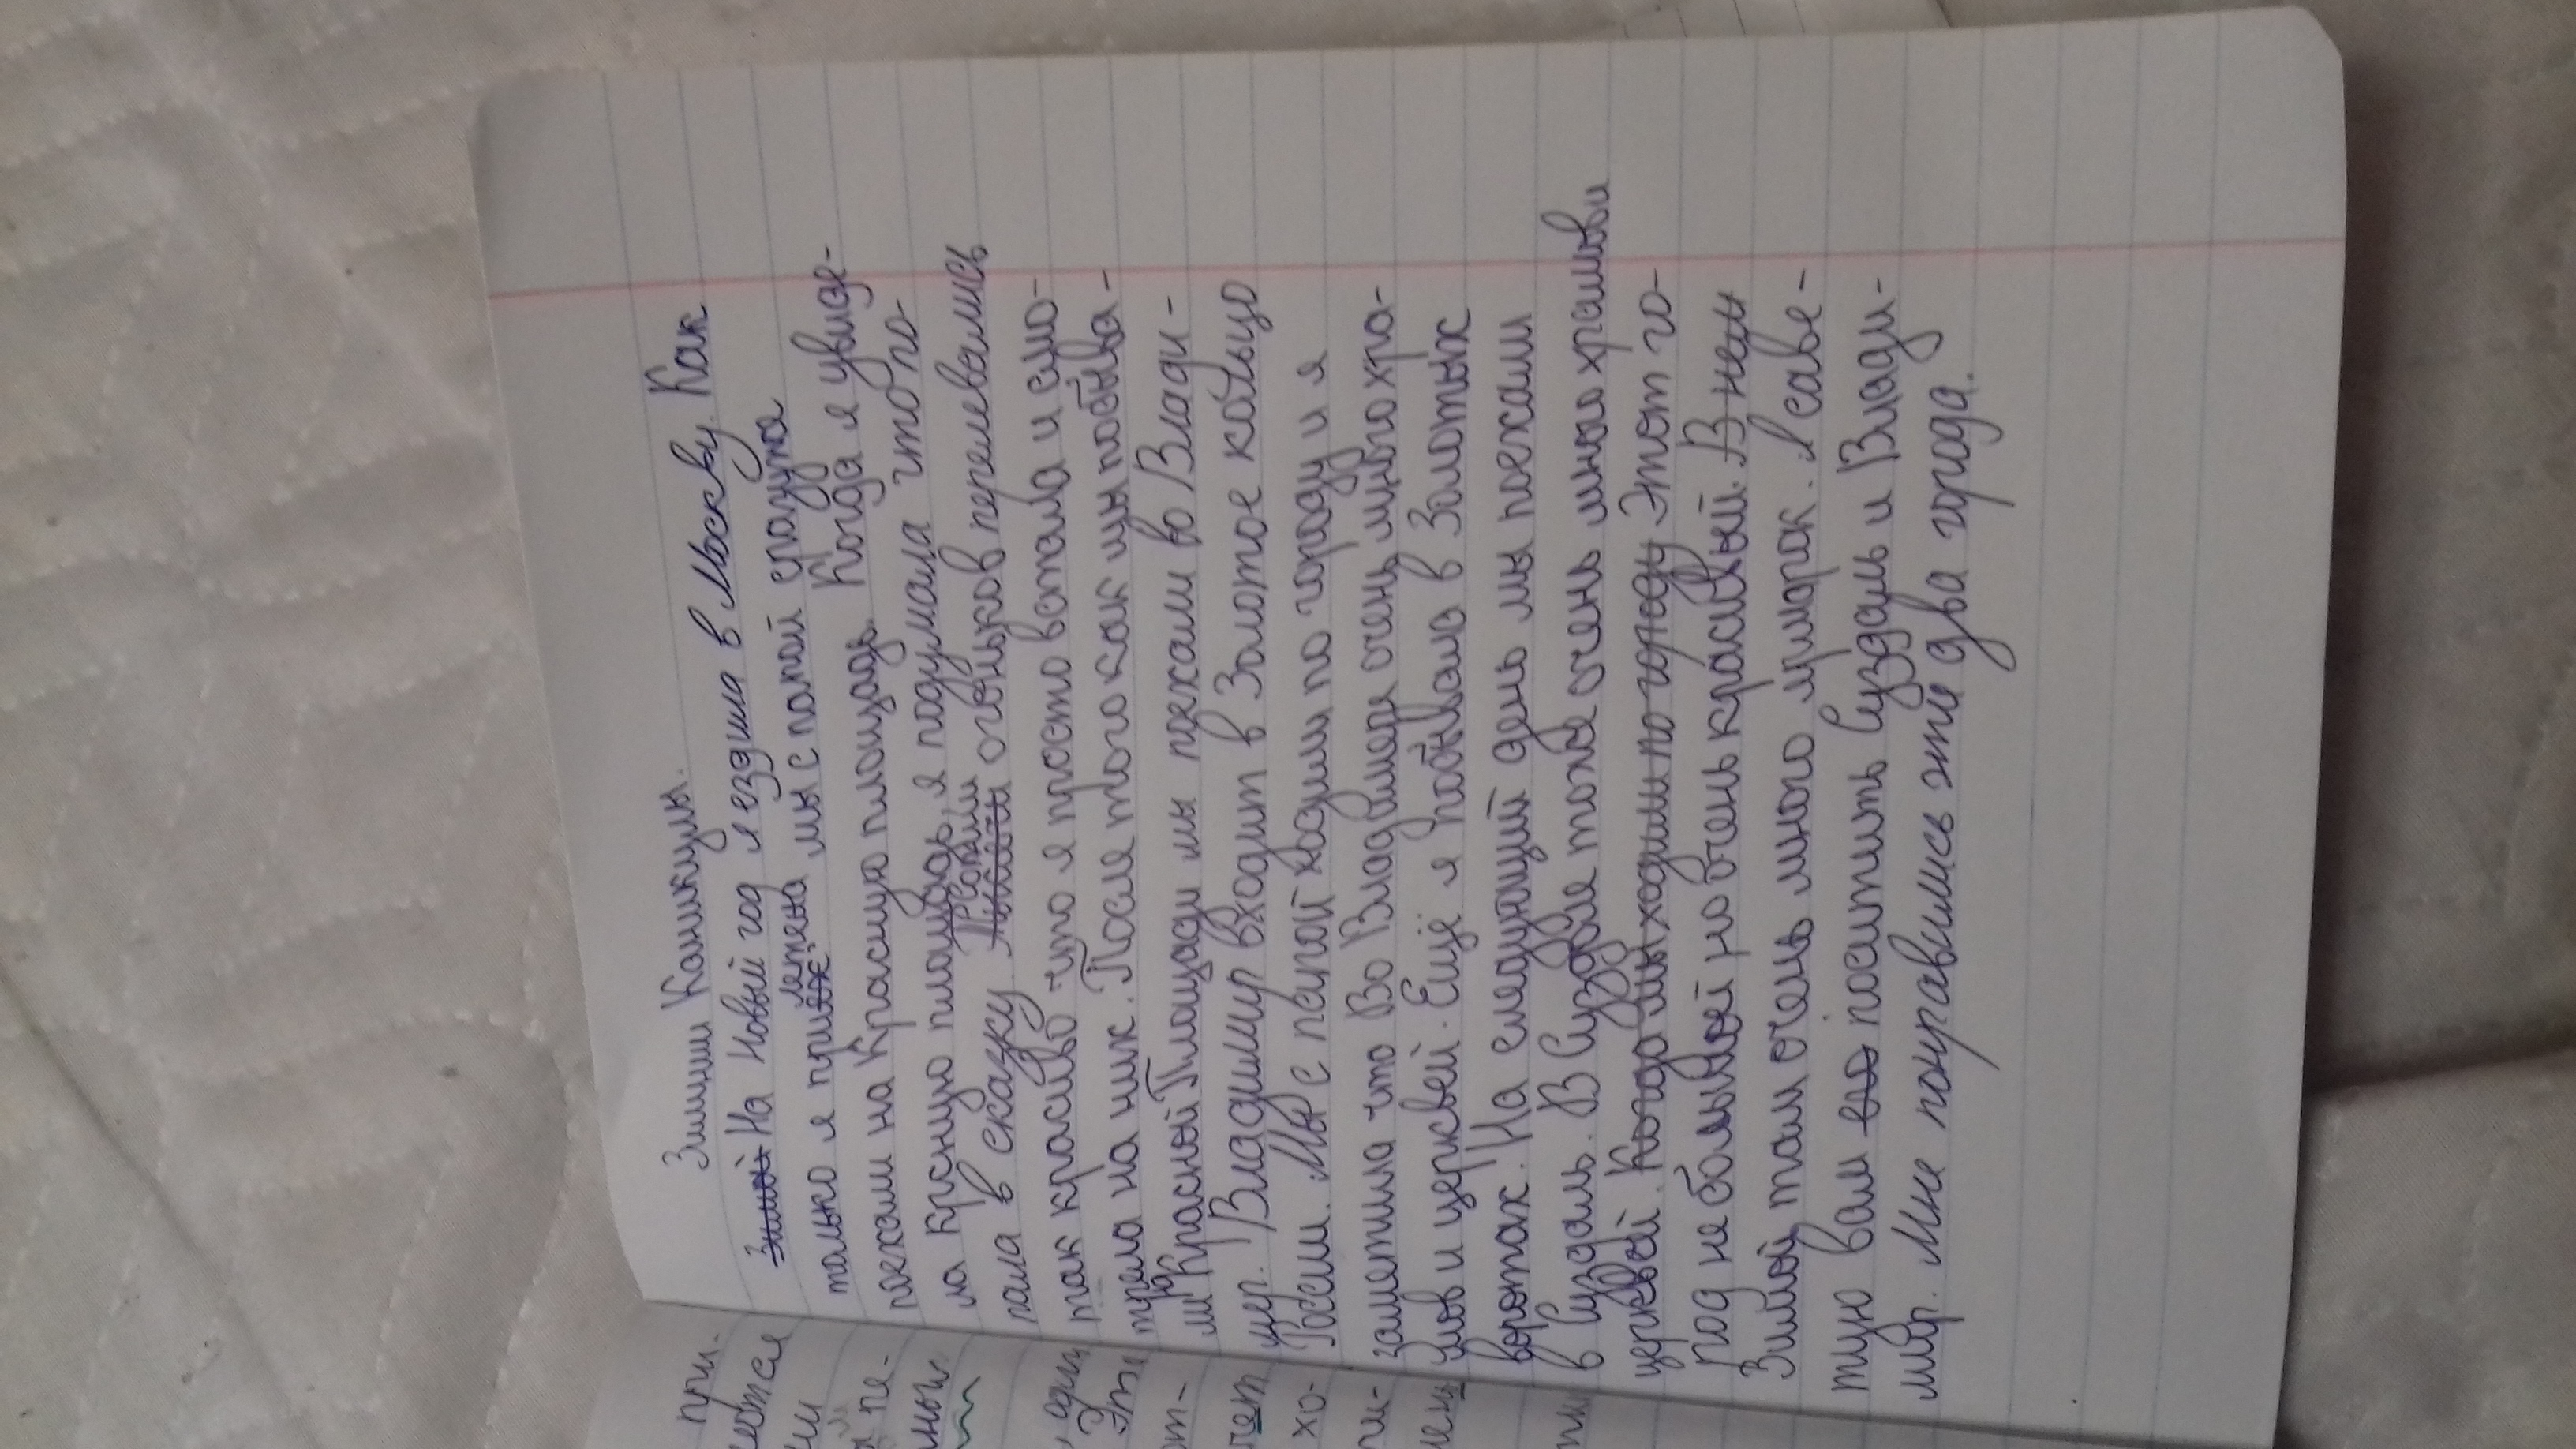 Зимнии Каникулы.
Зимой На Новый год я ездила в Москву. Как
летела
только я приеж мы с папой сразуже
поехали на Красную площадь. Когда я увиде-
ла Крсную площадь, я подумала что по-
Сотни
пала в сказку огоньков перелевались
так красиво что я просто встала и смо-
трела на них. После того как мы побыва-
на
ли Красной Площади мы поехали во Влади-
мир. Владимир входит в Золотое кольцо
России. Мы с папой ходили по городу и я
заметила что Во Владимере очень много хра-
мов и церквей. Ещё я побывала в Золотых
воротах. На следующий день мы поехали
в Суздаль. В Суздале тоже очень много храмов и
церквей. Когда мы ходили по городу Этот го-
род не большой но очень красивый. В нем
Зимой там очень много ярмарок. Я саве-
тую вам поситить Суздаль и Влади-
мир. Мне понравились эти два города.
при-
яется
пе-
один
Эти
хо-